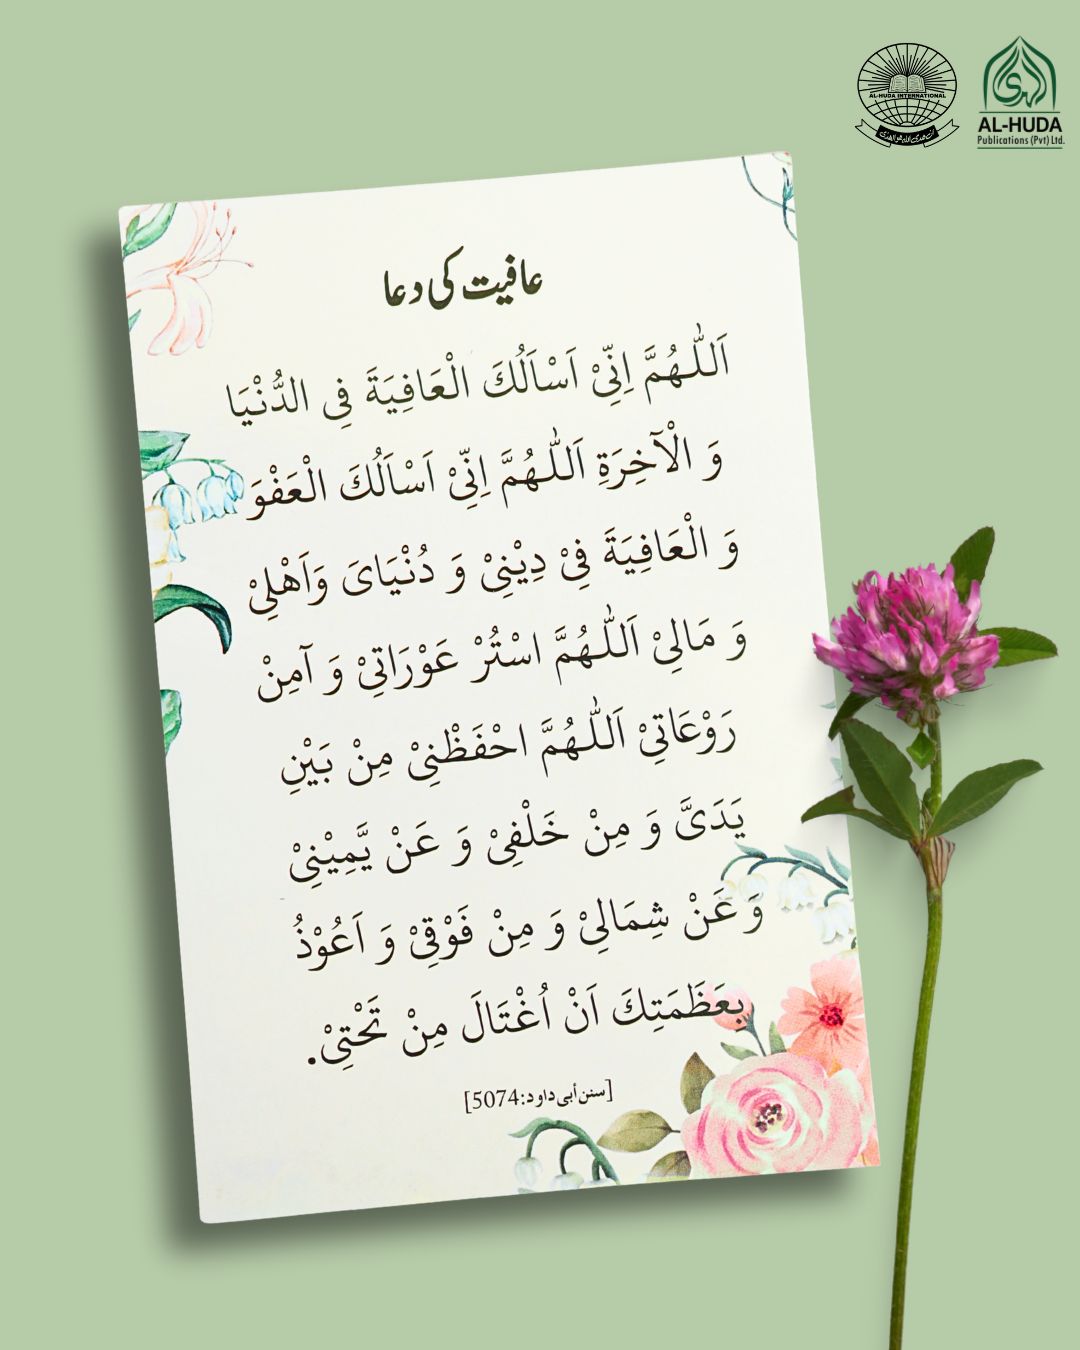 AL-HUDA INTERNATIONAL
AL-HUDA
Publications (Pvt) Ltd.
عافیت کی دعا
اَللّٰهُمَّ اِنِّیْ اَسْاَلُكَ الْعَافِيَةَ فِی الدُّنْيَا
وَ الْآخِرَةِ اَللّٰهُمَّ اِنِّیْ اَسْاَلُكَ الْعَفْوَ
وَ الْعَافِيَةَ فِیْ دِيْنِیْ وَ دُنْيَایَ وَاَهْلِیْ
وَ مَالِیْ اَللّٰهُمَّ اسْتُرْ عَوْرَاتِیْ وَ آمِنْ
رَوْعَاتِیْ اَللّٰهُمَّ احْفَظْنِیْ مِنْ بَيْنِ
يَدَیَّ وَ مِنْ خَلْفِیْ وَ عَنْ يَّمِيْنِیْ
وَ عَنْ شِمَالِیْ وَ مِنْ فَوْقِیْ وَ اَعُوْذُ
بِعَظَمَتِكَ اَنْ اُغْتَالَ مِنْ تَحْتِیْ.
[سنن أبی داود:5074]